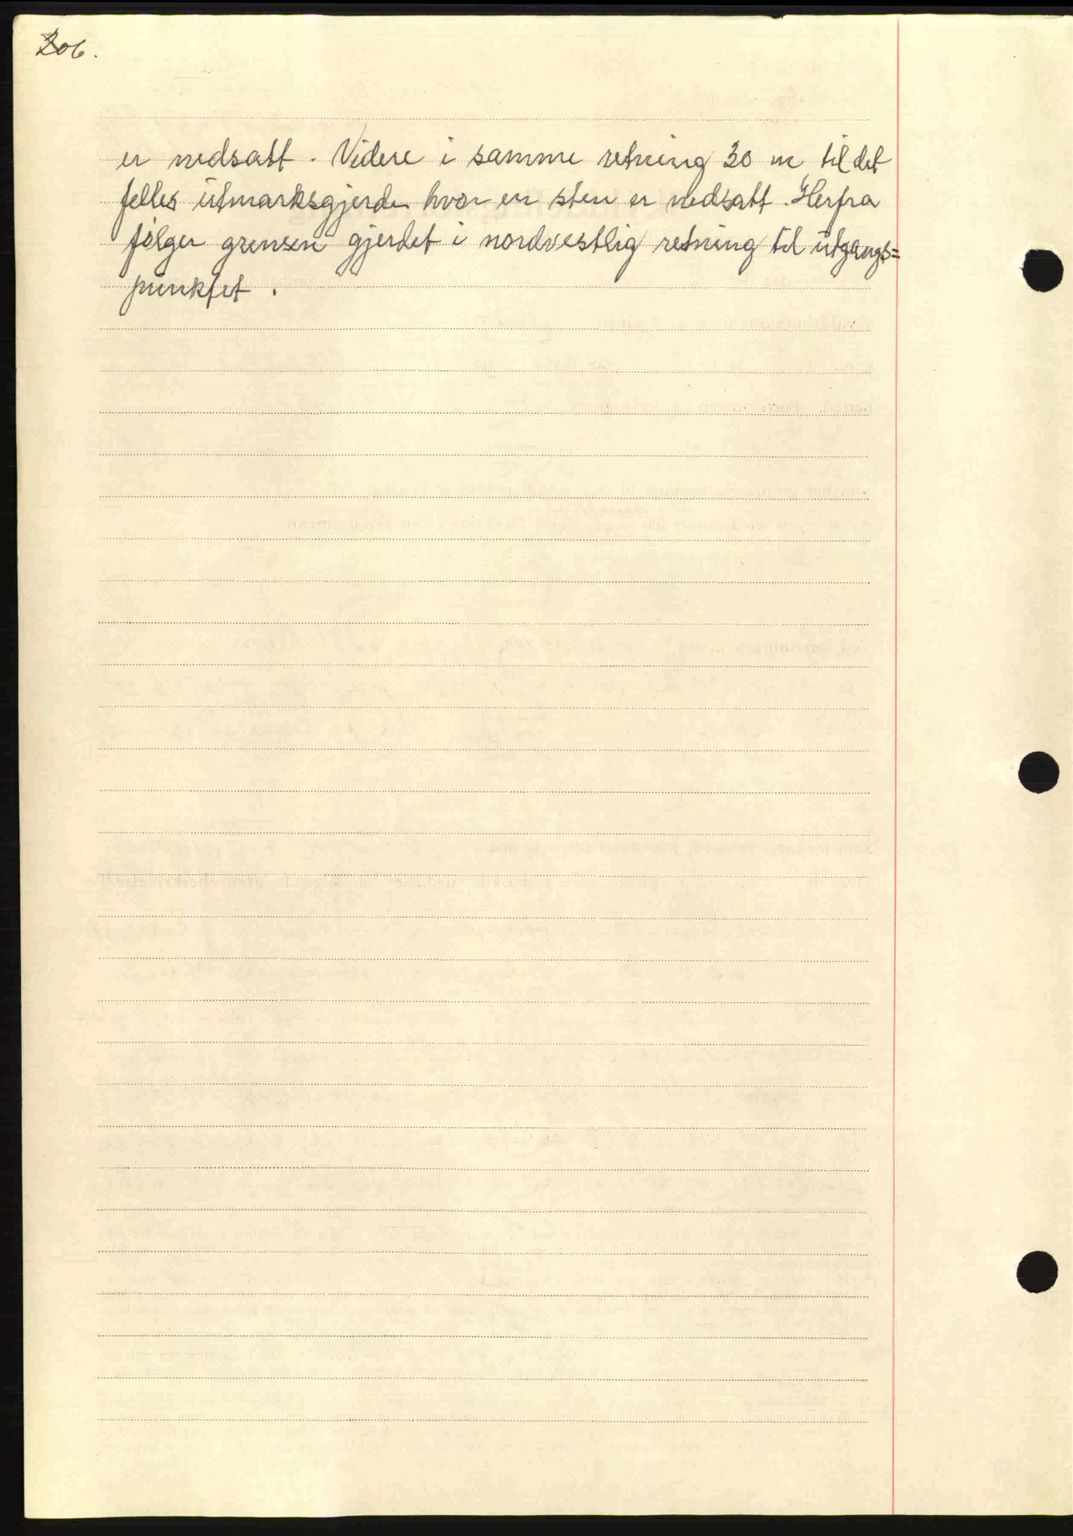 306.
er nedsatt. Videre i samme retning 30 m til det
felles utmarksgjerde hvor en sten er nedsatt. Herfra
følger grensen gjerdet i nordvestlig retning til utgangs=
punktet.